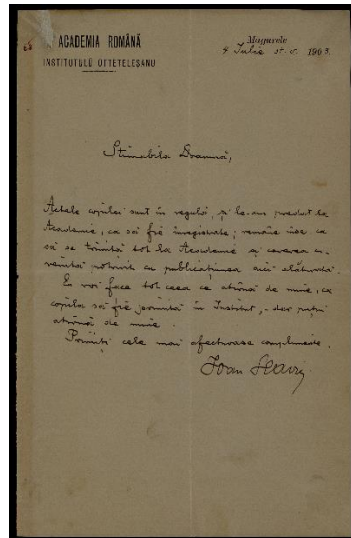 ACADEMIA ROMÂNĂ
INSTITUTULŬ OTTETELEȘANU
Magurele
9 Iulie st. v. 1903.
Stimabila Doamnă,
Actele copilei sunt în regulă, și le-am predat la
Academie, ca să fie înregistrate; remâie însă ca
să se trimită tot la Academie și cererea cu-
venită potrivit cu publicațiunea aici alăturată.
Eu voi face tot ceea ce atârnă de mine, ca
copila să fie primită în Institut, - dar puțin
atârnă de mine.
Primiți cele mai afectuoase complimente.
Ioan Slavici